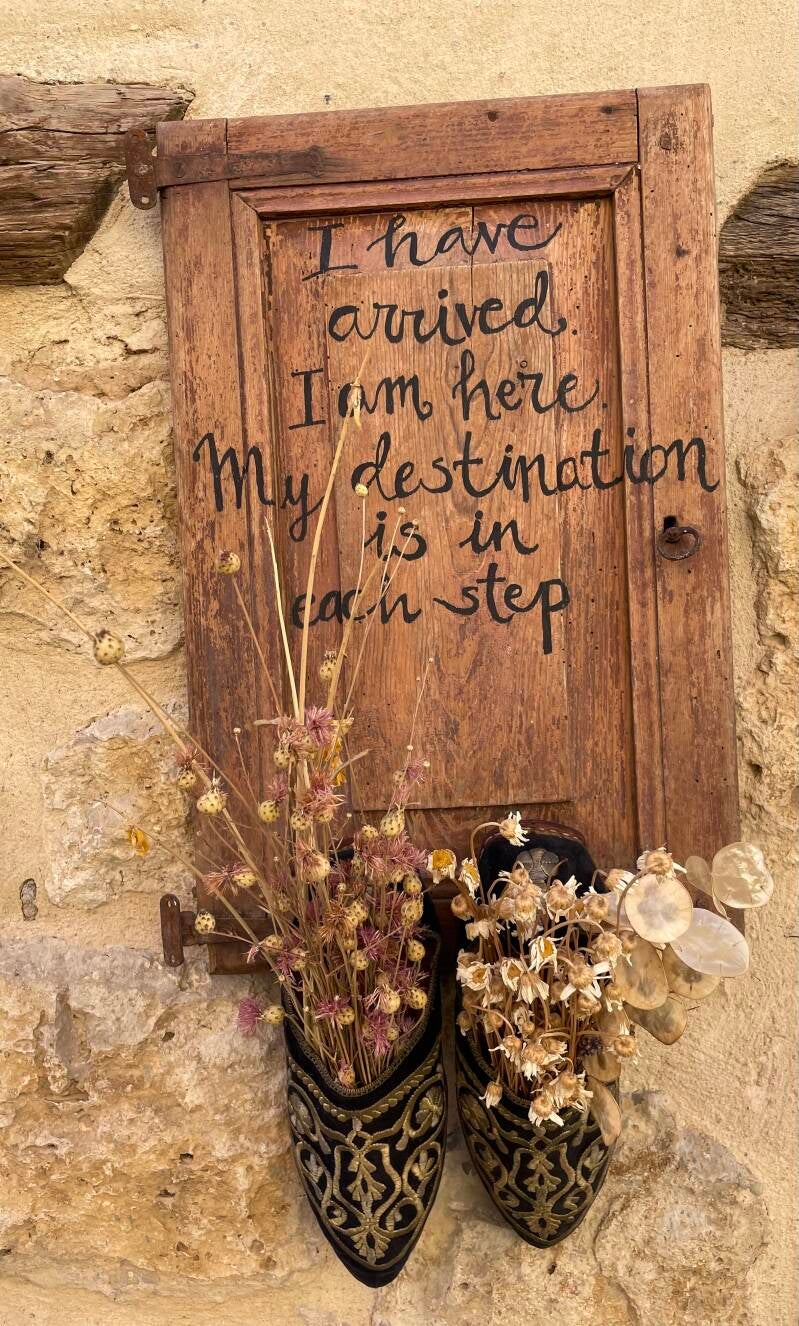 I have
arrived.
I am here.
My destination
is in
each step